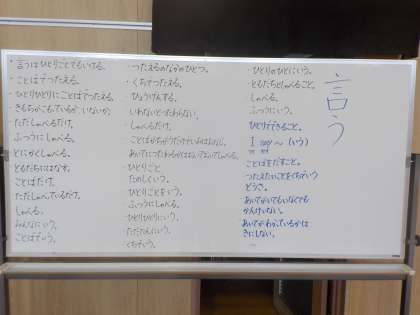 言う
・言うはひとりごとでもいける。
・ことばでつたえる。
・ひとりひとりにことばでつたえる。
きもちがこもっているか、いないか
・ただしゃべるだけ。
ふつうにしゃべる。
とにかくしゃべる。
ともだちにはなす。
ことばだけ。
ただしゃべっているだけ。
しゃべる。
みんなにいう。
ことばでいう。
・つたえるのなかのひとつ。
・くちでつたえる。
・ひょうげんする。
・いわないとつたわらない。
・しゃべるだけ。
ひとりごと
たのしくいう。
ひとりごとをいう。
ふつうにしゃべる。
ひとりひとりにいう。
くちでいう。
ひとりのひとにいう。
・ともだちとしゃべること。
しゃべる。
ふつうにいう。
ひとりでできること。
I say ～ (いう)
ことばをだすこと。
つたえたいことをくちでいう
どうさ。
あいてがいてもいなくても
かんけいない。
あいてがわかっているかは
きにしない。